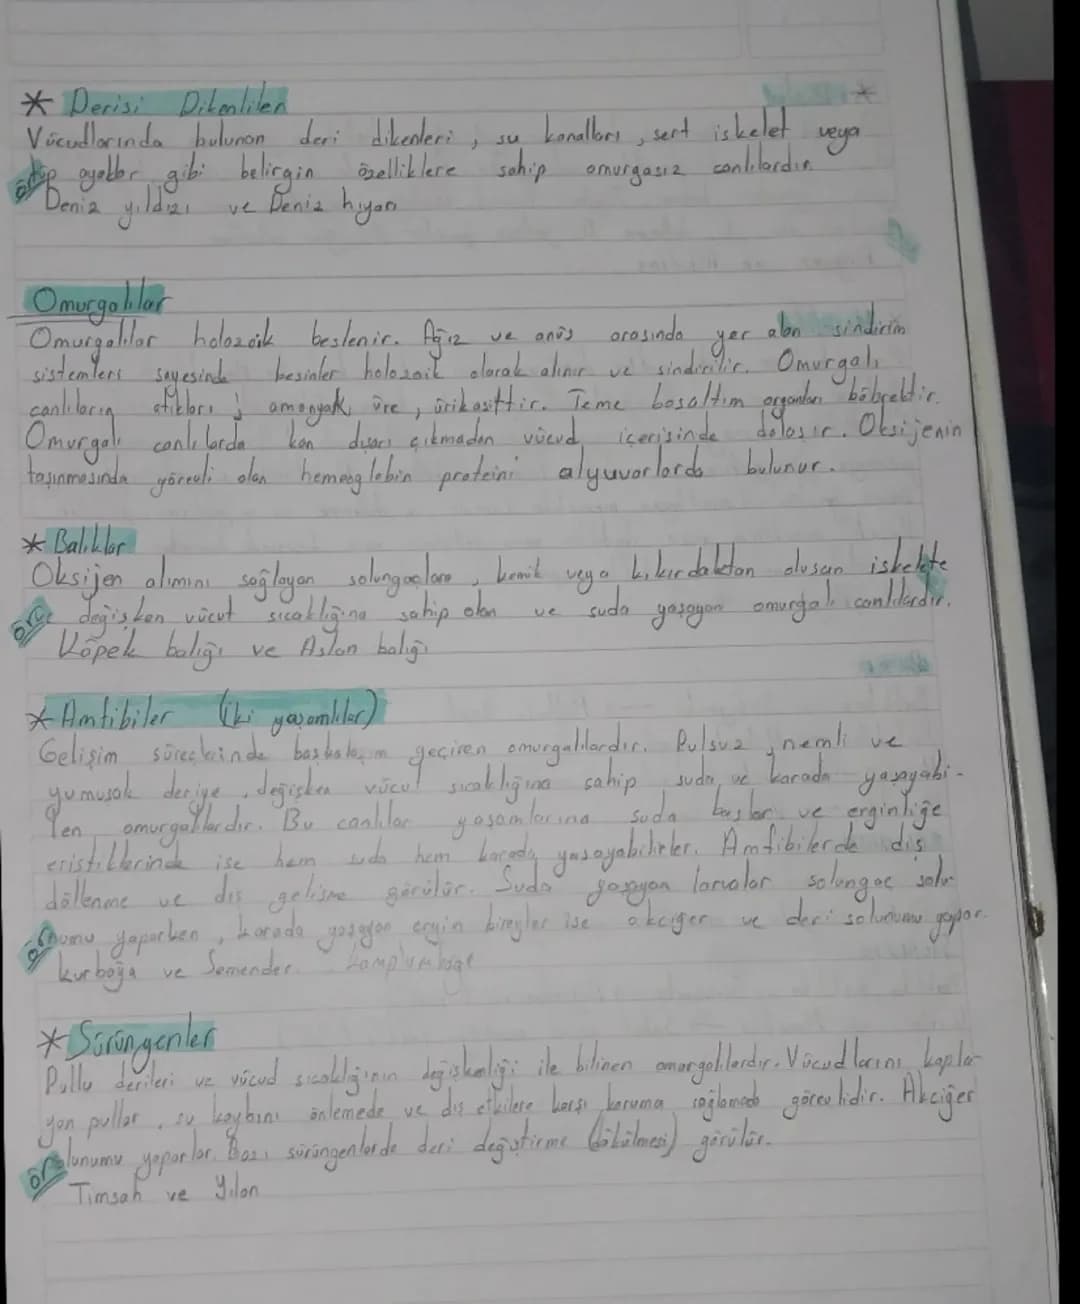 * Derisi Dikenliler
Vücudlarında bulunan deri dikenleri, su kanalları, sert iskelet veya
tüp ayaklar gibi belirgin özelliklere sahip omurgasız canlılardır.
Deniz yıldızı ve Deniz hıyarı
Omurgalılar
Omurgalılar holozoik beslenir. Ağız ve anüs arasında yer alan sindirim
sistemleri sayesinde besinler holozoik olarak alınır ve sindirilir. Omurgalı
canlıların atıkları; amonyak, üre, ürikasittir. Teme bosaltım organları böbrektir.
Omurgalı canlılarda kan dışarı çıkmadan vücud içerisinde dolaşır. Oksijenin
taşınmasında görevli olan hemoglebin proteini alyuvarlarda bulunur.
* Balıklar
Oksijen alımını sağlayan solungaçlara, kemik veya kıkırdaktan olusan iskelete
değişken vücut sıcaklığına sahip olan ve suda yaşayan omurgalı canlılardır.
ör:
Köpek balığı ve Aslan balığı
* Amfibiler (iki yaşamlılar)
Gelişim süreçlerinde başkalaşım geçiren omurgalılardır. Pulsuz, nemli ve
yumuşak deriye, değişken vücut sıcaklığına sahip suda ve karada yaşayabi-
len omurgalılardır. Bu canlılar yaşamlarına suda başlar ve erginliğe
eristiklerinde ise hem suda hem karada yaşayabilirler. Amfibilerde dış
döllenme ve dış gelişme görülür. Suda yaşayan larvalar solungaç solu-
numu yaparken, karada yaşayan ergin bireyler ise akciğer ve deri solunumu yapar.
kurbağa ve Semender.
* Sürüngenler
Pullu derileri ve vücud sıcaklığının değişkenliği ile bilinen omurgalılardır. Vücudlarını kapla-
yan pullar, su kaybını önlemede ve dış etkilere karşı koruma sağlamada görevlidir. Akciğer
solunumu yaparlar. Bazı sürüngenlerde deri değiştirme (dökülmesi) görülür.
ör:
Timsah ve Yılan